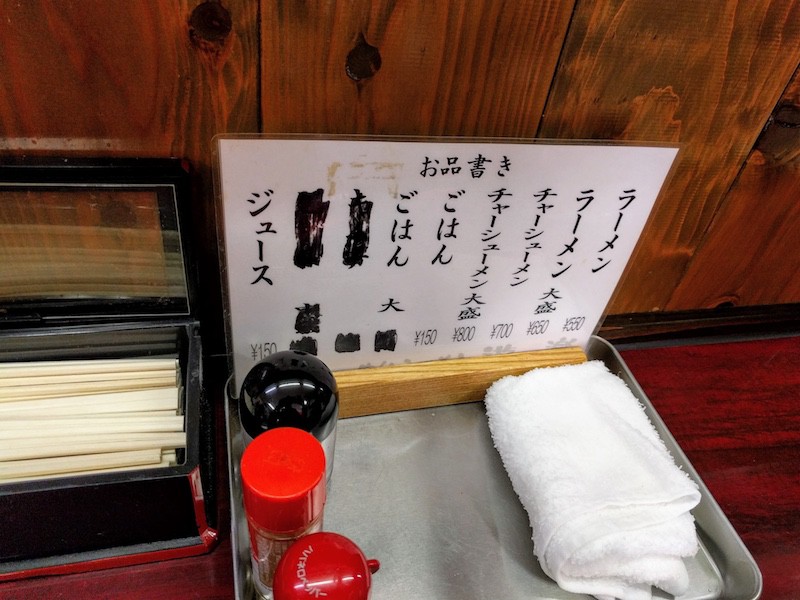 お品書き
ラーメン ¥550
ラーメン 大盛 ¥650
チャーシューメン ¥700
チャーシューメン 大盛 ¥800
ごはん ¥150
ごはん 大
ジュース ¥150